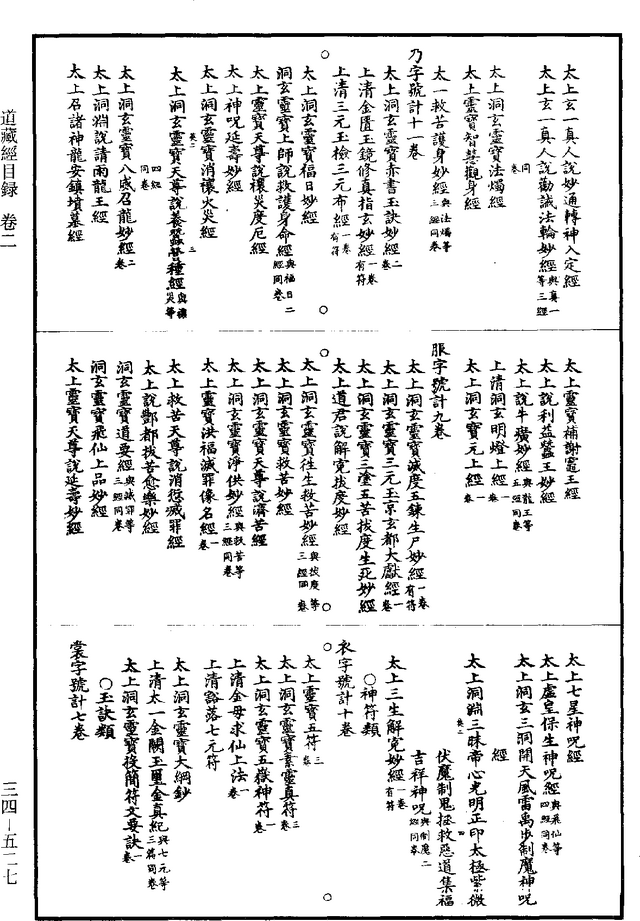 道藏經目録 卷二
太上玄一真人說妙通轉神入定經
太上玄一真人說勸誡法輪妙經與真一等三經同卷
太上洞玄靈寶法燭經
太上靈寶智慧觀身經
太一救苦護身妙經與法燭等三經同卷
乃字號計十一卷
太上洞玄靈寶赤書玉訣妙經二卷
上清金匱玉鏡修真指玄妙經一卷有符
上清三元玉檢三元布經一卷有符
太上洞玄靈寶福日妙經
洞玄靈寶上師說救護身命經與福日二經同卷
太上靈寶天尊說禳災度厄經
太上神呪延壽妙經
太上洞玄靈寶消禳火災經
太上洞玄靈寶天尊說養蠶營種經與禳災等四經同卷
太上洞玄靈寶八威召龍妙經二卷
太上洞淵說請雨龍王經
太上召諸神龍安鎮墳墓經
太上靈寶補謝竈王經
太上說利益蠶王妙經
太上說牛癀妙經與龍王等五經同卷
上清洞玄明燈上經一卷
太上洞玄寶元上經一卷
服字號計九卷
太上洞玄靈寶滅度五鍊生尸妙經一卷有符
太上洞玄靈寶三元玉京玄都大獻經一卷
太上洞玄靈寶三塗五苦拔度生死妙經
太上道君說解寃拔度妙經
太上洞玄靈寶往生救苦妙經與拔度等三經同卷
太上洞玄靈寶救苦妙經
太上洞玄靈寶天尊說濟苦經
太上洞玄靈寶淨供妙經與救苦等三經同卷
太上靈寶洪福滅罪像名經一卷
太上救苦天尊說消愆滅罪經
太上說酆都拔苦愈樂妙經
洞玄靈寶道要經與滅罪等三經同卷
洞玄靈寶飛仙上品妙經
太上靈寶天尊說延壽妙經
太上七星神呪經
太上虛皇保生神呪經與飛仙等四經同卷
太上洞玄三洞開天風雷禹步制魔神呪
經
太上洞淵三昧帝心光明正印太極紫微
伏魔制鬼拯救惡道集福
吉祥神呪與制魔二經同卷
太上三生解寃妙經一卷有符
○神符類
衣字號計十卷
太上靈寶五符三卷
太上洞玄靈寶素靈真符三卷
太上洞玄靈寶五嶽神符一卷
上清金母求仙上法一卷
上清豁落七元符
太上洞玄靈寶大綱鈔
上清太一金闕玉璽金真紀與七元等三篇同卷
太上洞玄靈寶投簡符文要訣一卷
○玉訣類
裳字號計七卷
三四－五二七